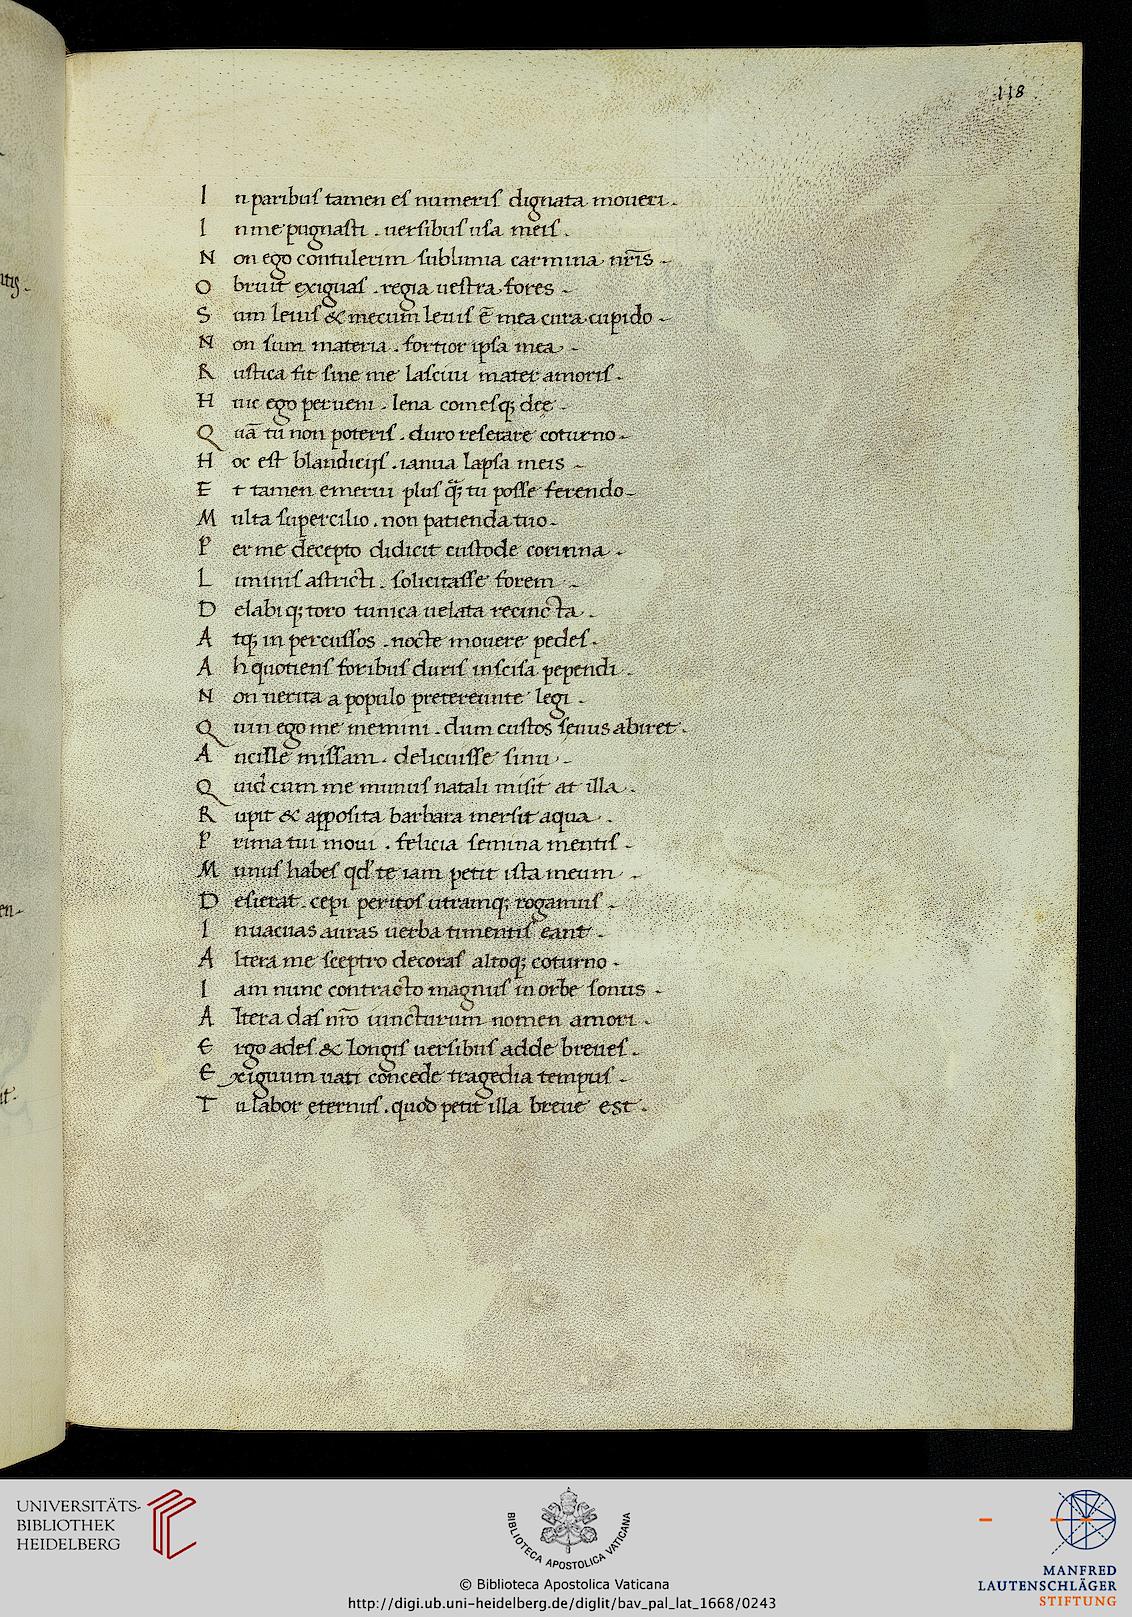 118
In paribus tamen es numeris dignata moueri.
In me pugnasti . uersibus usa meis.
Non ego contulerim sublimia carmina nr̄is.
Obruit exiguas . regia uestra fores.
Sum leuis & mecum leuis ē mea cura cupido.
Non sum materia . fortior ipsa mea.
Rustica sit sine me lasciui mater amoris.
Huic ego perueni . lena comesq; deę.
Quā tu non poteris . duro reserare coturno.
Hoc est blandicijs . ianua lapsa meis.
Et tamen emerui plus q̄; tu posse ferendo.
Multa supercilio . non patienda tuo.
Per me decepto didicit custode corinna.
Liminis astricti . solicitasse forem.
Delabiq; toro tunica uelata recincta.
Atq; in percussos . nocte mouere pedes.
Ah quotiens foribus duris inscisa pependi.
Non uerita a populo pretereunte legi.
Quin ego me memini . dum custos sęuus abiret.
Ancille missam . delicuisse sinu.
Quid cum me munus natali misit at illa.
Rupit & apposita barbara mersit aqua.
Prima tui moui . felicia semina mentis.
Munus habes qd' te iam petit ista meum.
Desierat . cepi peritos utramq; rogamus.
In uacuas auras uerba timentis eant.
Altera me sceptro decoras altoq; coturno.
Iam nunc contracto magnus in orbe sonus.
Altera das nr̄o uincturum nomen amori.
Ergo ades & longis uersibus adde breues.
Exiguum uati concede tragedia tempus.
Tu labor eternus . quod petit illa breue est.
UNIVERSITÄTS-
BIBLIOTHEK
HEIDELBERG
BIBLIOTECA APOSTOLICA VATICANA
MANFRED
LAUTENSCHLÄGER
STIFTUNG
© Biblioteca Apostolica Vaticana
http://digi.ub.uni-heidelberg.de/diglit/bav_pal_lat_1668/0243